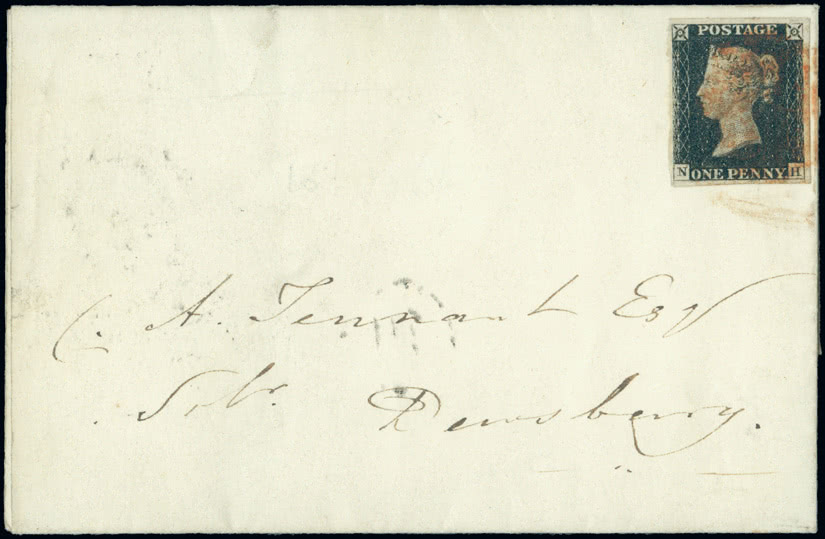 POSTAGE
N ONE PENNY H
C. A. Tennant Esqr
Solr. Dewsberry.